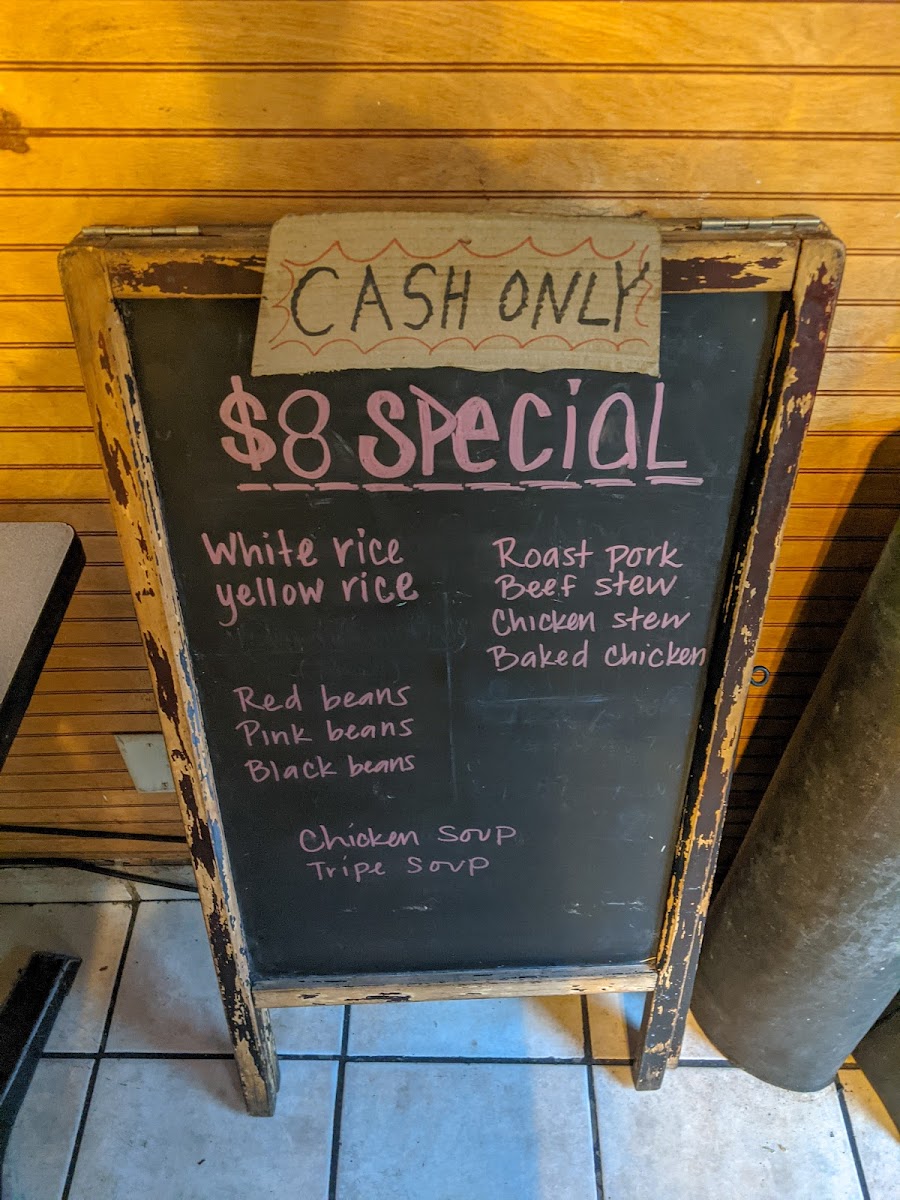 CASH ONLY
$8 SPeciaL
White rice
yellow rice
Red beans
Pink beans
Black beans
Roast pork
Beef stew
Chicken stew
Baked chicken
Chicken soup
Tripe soup